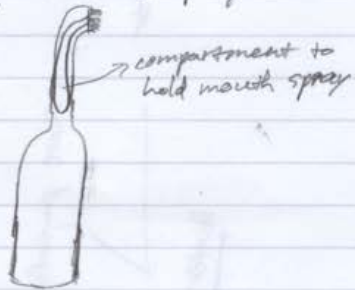 compartment to
hold mouth spray